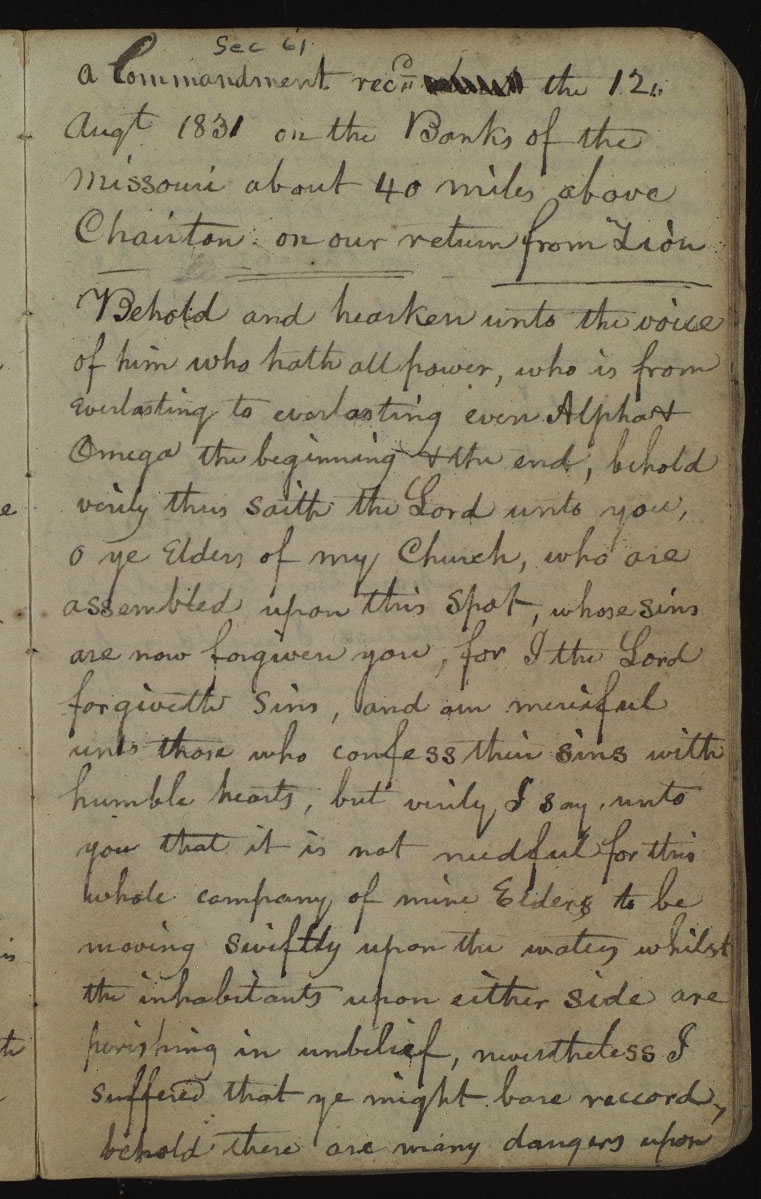 Sec 61
a Commandment recd the 12
Augt 1831 on the Banks of the
Missouri about 40 miles above
Chairton on our return from Zion
Behold and hearken unto the voice
of him who hath all power, who is from
everlasting to everlasting even Alpha &
Omega the beginning & the end, behold
verily thus saith the Lord unto you,
o ye Elders of my Church, who are
assembled upon this spot, whose sins
are now forgiven you, for I the Lord
forgiveth sins, and am merciful
unto those who confess their sins with
humble hearts, but verily I say unto
you that it is not needful for this
whole company of mine Elders to be
moving swiftly upon the waters whilst
the inhabitants upon either side are
perishing in unbelief, nevertheless I
suffered that ye might bare reccord,
behold there are many dangers upon
e
is
th